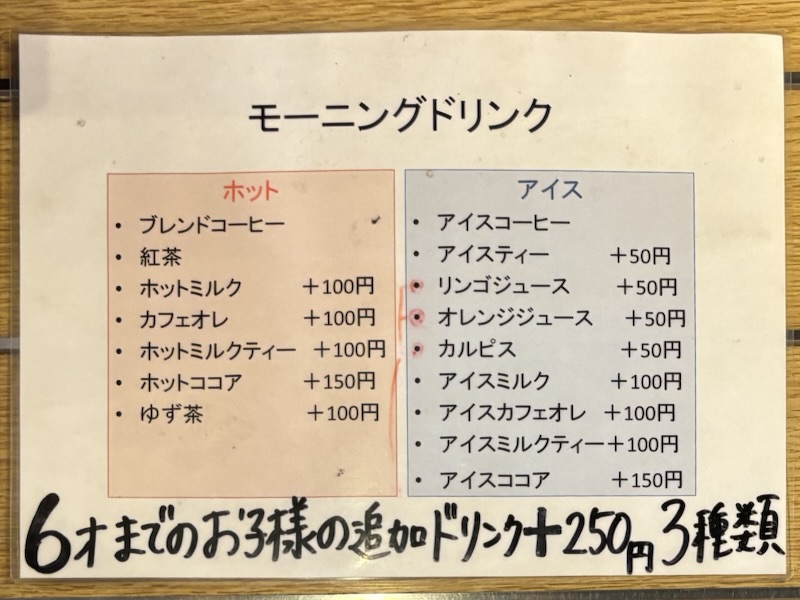 モーニングドリンク
ホット
・ ブレンドコーヒー
・ 紅茶
・ ホットミルク ＋100円
・ カフェオレ ＋100円
・ ホットミルクティー ＋100円
・ ホットココア ＋150円
・ ゆず茶 ＋100円
アイス
・ アイスコーヒー
・ アイスティー ＋50円
・ リンゴジュース ＋50円
・ オレンジジュース ＋50円
・ カルピス ＋50円
・ アイスミルク ＋100円
・ アイスカフェオレ ＋100円
・ アイスミルクティー＋100円
・ アイスココア ＋150円
6才までのお子様の追加ドリンク＋250円3種類